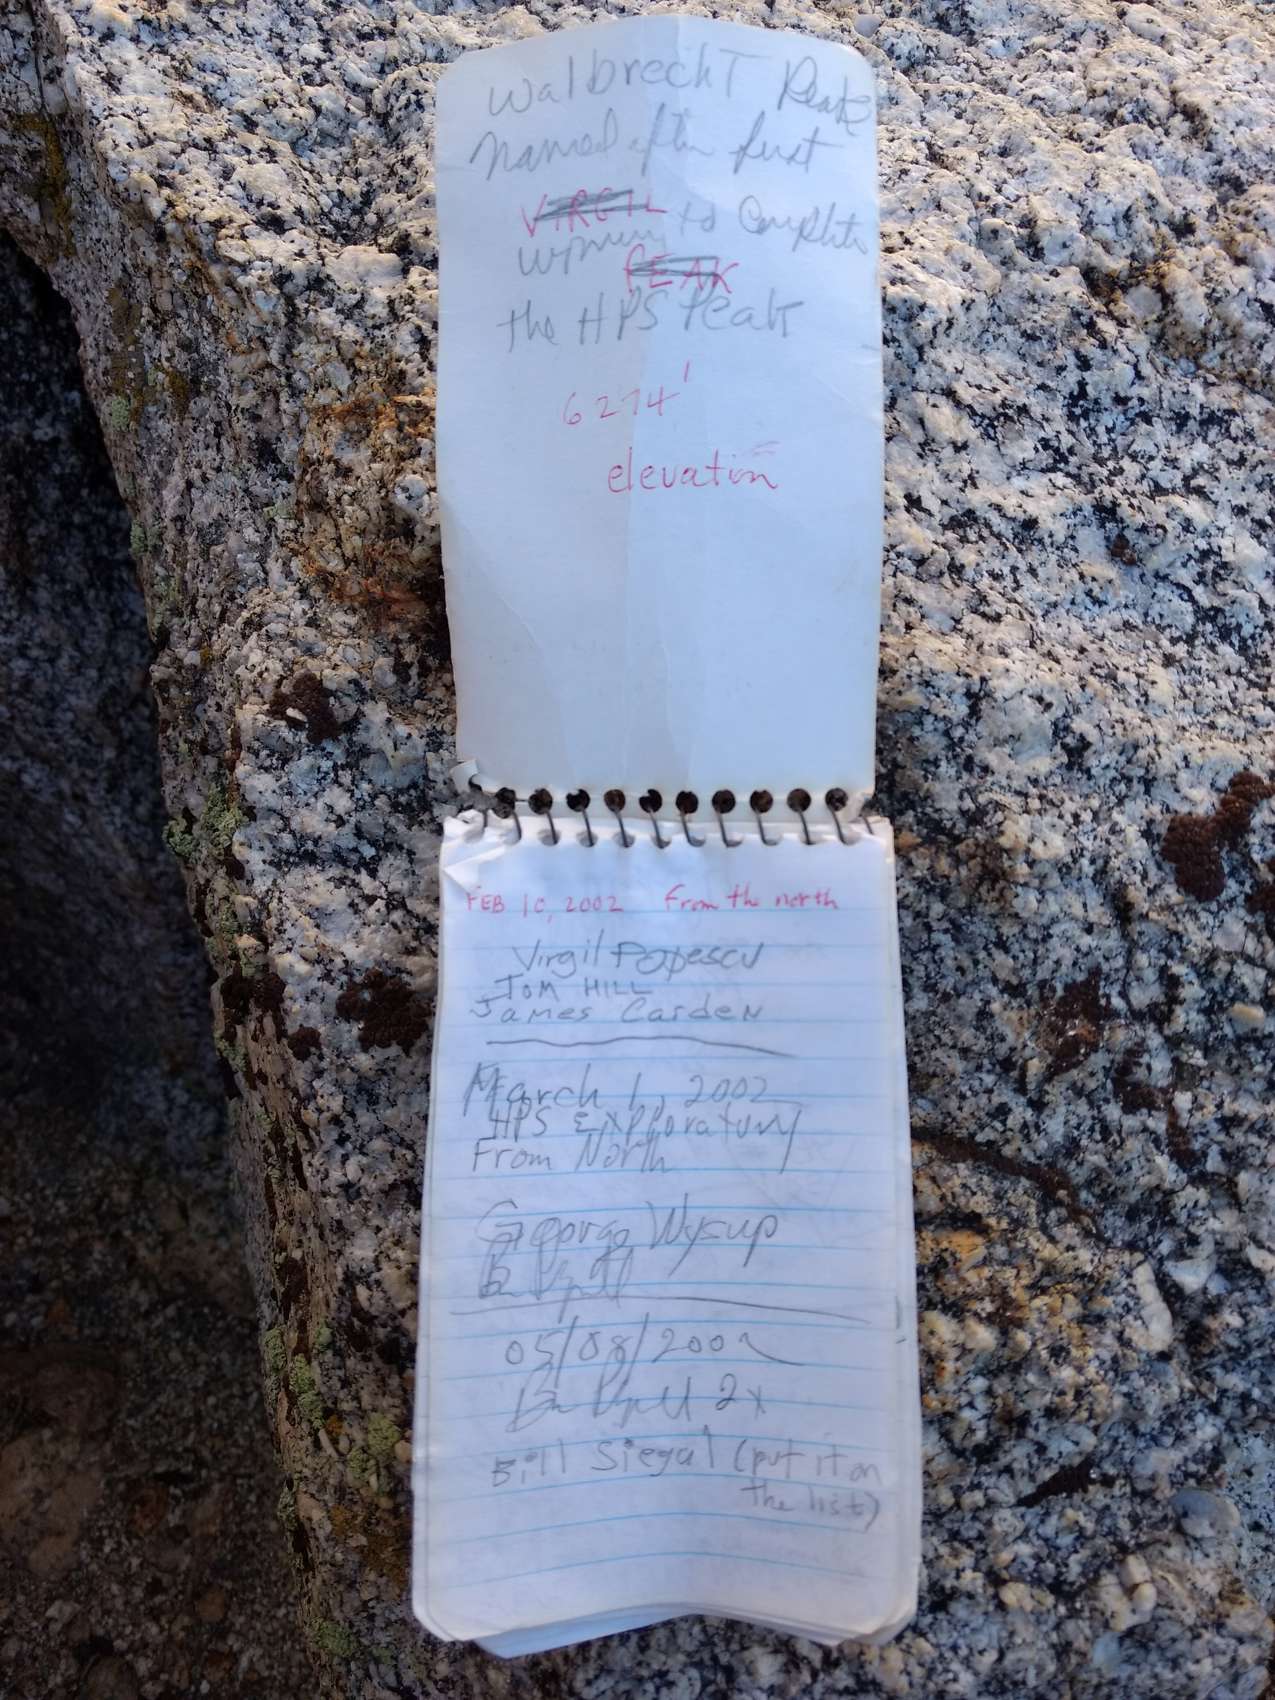 Walbrecht Peak
Named after first
VIRGIL
women to Complete
PEAK
the HPS Peak
6274'
elevation
FEB 10, 2002 From the north
Virgil Popescu
TOM HILL
James Carden
March 1, 2002
HPS Exploratory
From North
George Wysup
05/08/2002
2x
Bill Siegal (put it on
the list)